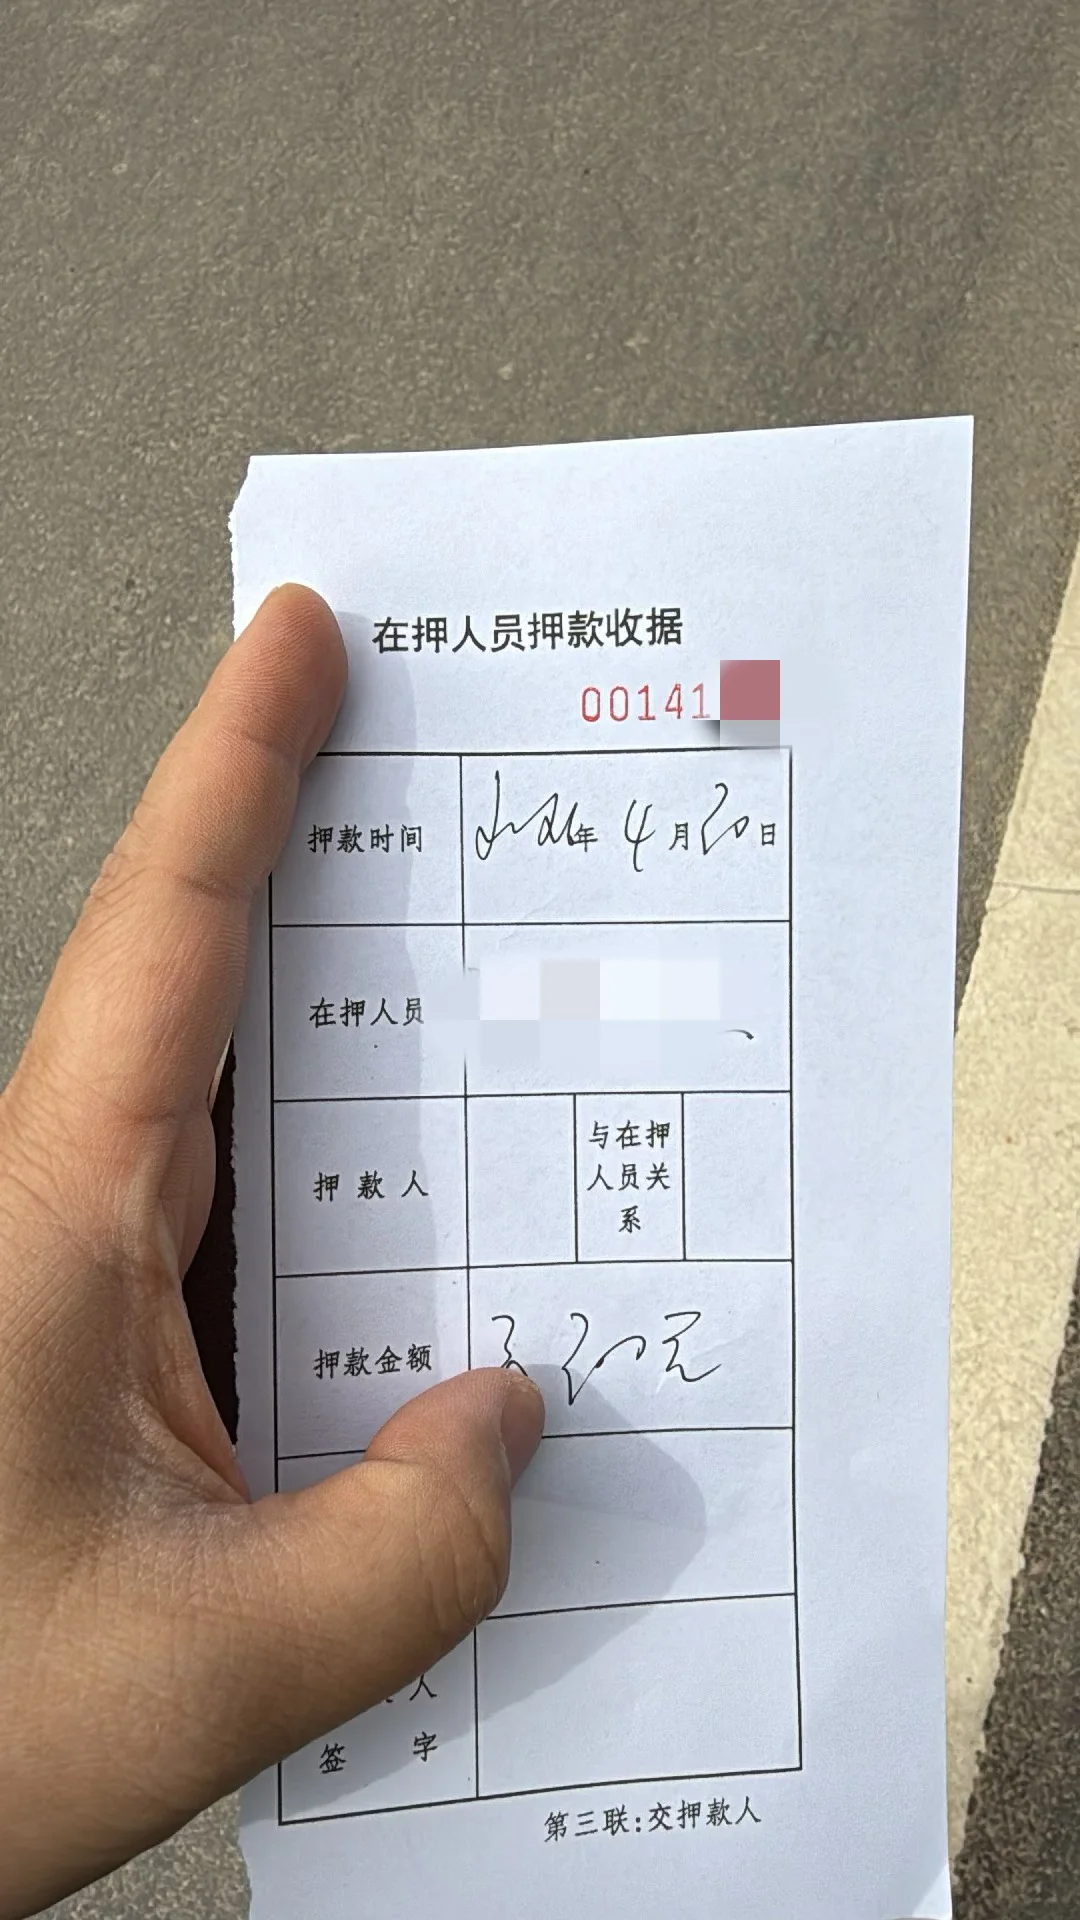 在押人员押款收据
00141
押款时间 年 4 月 20 日
在押人员
押款人 与在押人员关系
押款金额 元
人
签字
第三联:交押款人